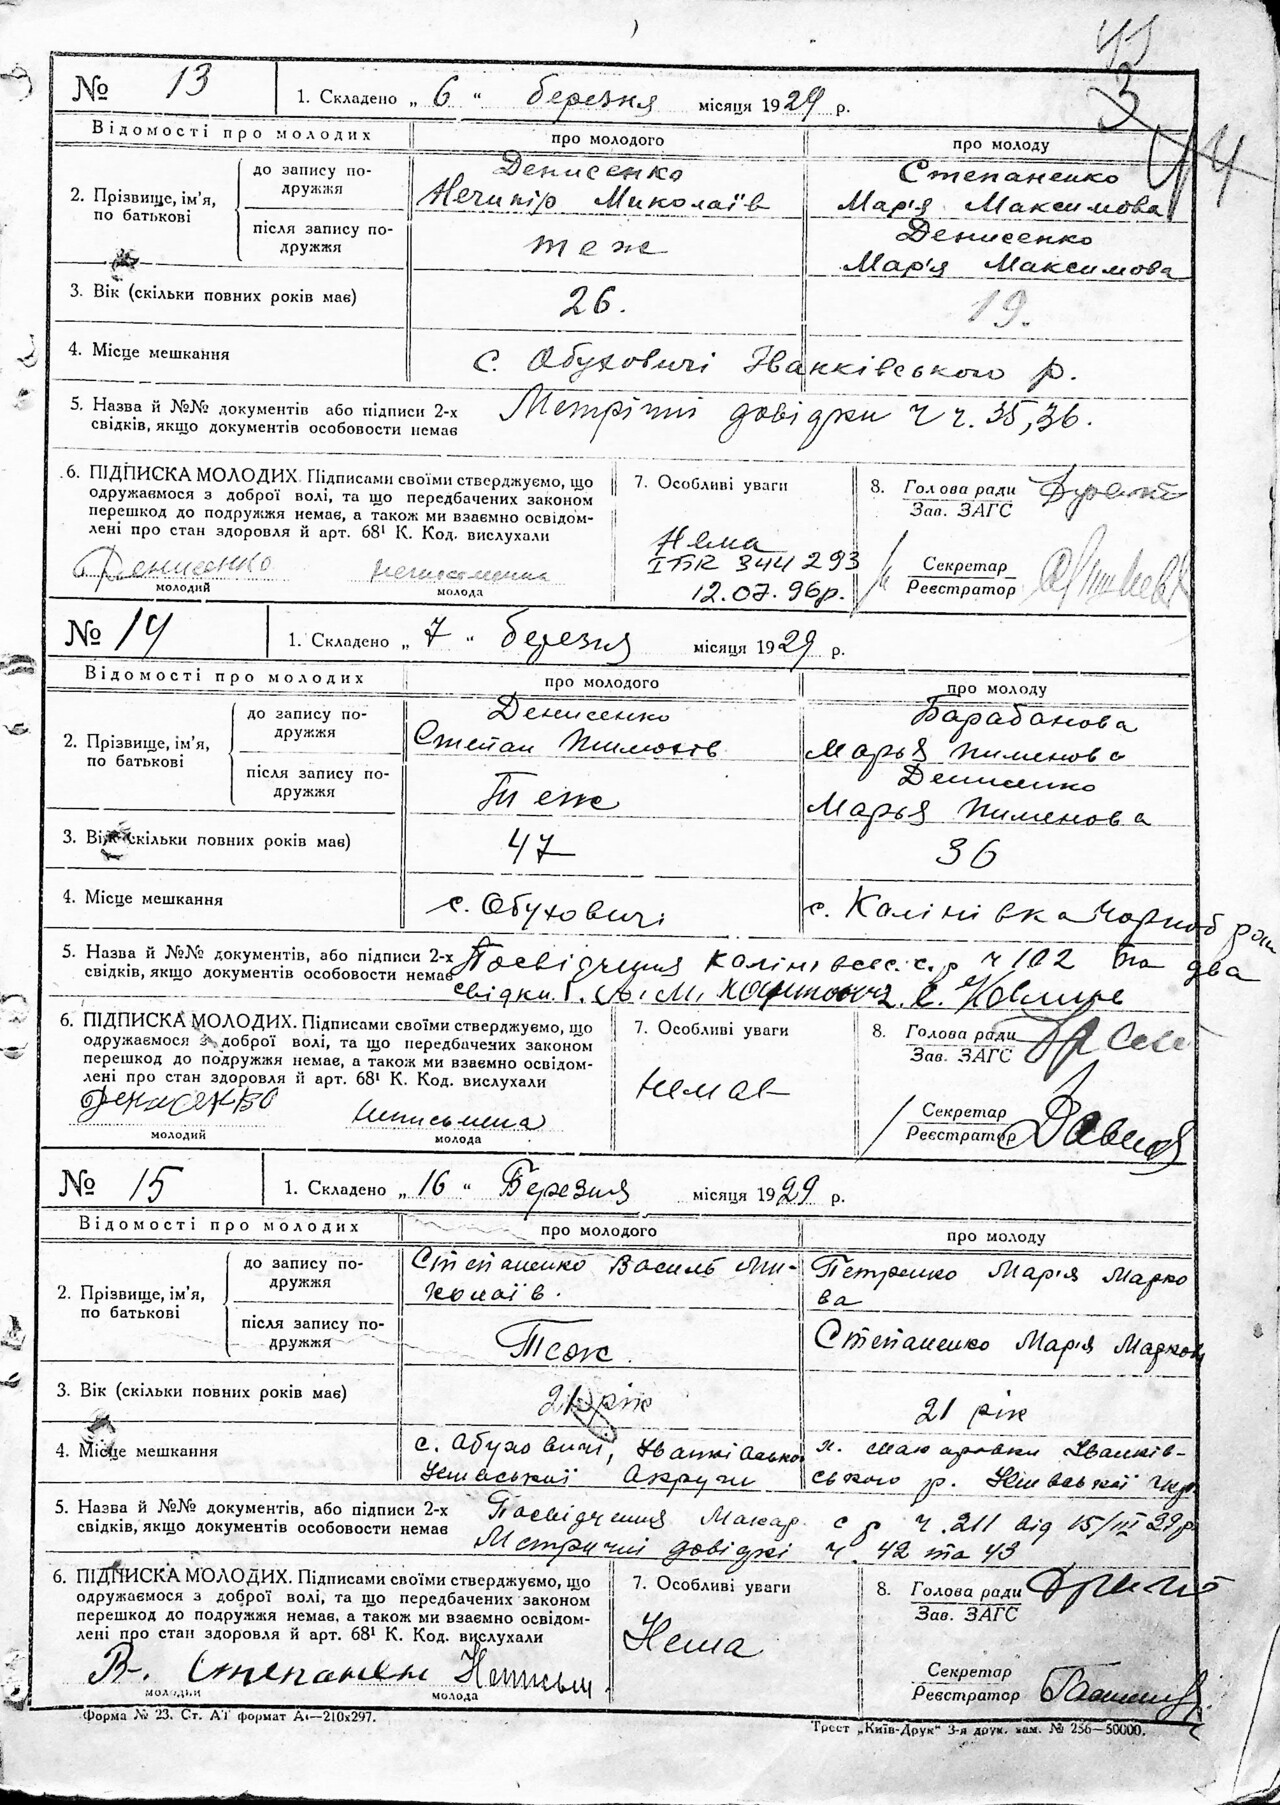 41
3
44
№ 13 1. Складено „ 6 “ березня місяця 1929 р.
Відомості про молодих про молодого про молоду
2. Прізвище, ім'я, по батькові
до запису подружжя
Денисенко
Нечипір Миколаїв
Степаненко
Мар'я Максимова
після запису подружжя
теж
Денисенко
Мар'я Максимова
3. Вік (скільки повних років має) 26. 19.
4. Місце мешкання с. Обуховичі Іванківського р.
5. Назва й №№ документів або підписи 2-х Метричні довідки ч ч. 35, 36.
свідків, якщо документів особовости немає
6. ПІДПИСКА МОЛОДИХ. Підписами своїми стверджуємо, що
одружаємося з доброї волі, та що передбачених законом
перешкод до подружжя немає, а також ми взаємно освідом-
лені про стан здоровля й арт. 68¹ К. Код. вислухали
Денисенко неписьменна
молодий молода
7. Особливі уваги
Нема
ІБК 344293
12.07.96р.
8. Голова ради
Зав. ЗАГС
Секретар
Реєстратор
№ 14 1. Складено „ 7 “ березня місяця 1929 р.
Відомості про молодих про молодого про молоду
2. Прізвище, ім'я, по батькові
до запису подружжя
Денисенко
Степан
Барабанова
Марья Пименова
після запису подружжя
Теж
Денисенко
Марья Пименова
3. Вік (скільки повних років має) 47 36
4. Місце мешкання с. Обуховичі с. Калінівка Чорноб рай
5. Назва й №№ документів, або підписи 2-х Посвідчення Калінівськ. с. р ч 102 та два
свідків, якщо документів особовости немає свідки
6. ПІДПИСКА МОЛОДИХ. Підписами своїми стверджуємо, що
одружаємося з доброї волі, та що передбачених законом
перешкод до подружжя немає, а також ми взаємно освідом-
лені про стан здоровля й арт. 68¹ К. Код. вислухали
Денисенко неписьмена
молодий молода
7. Особливі уваги
немає
8. Голова ради
Зав. ЗАГС
Секретар
Реєстратор
№ 15 1. Складено „ 16 “ Березня місяця 1929 р.
Відомості про молодих про молодого про молоду
2. Прізвище, ім'я, по батькові
до запису подружжя
Степаненко Василь Ми-
колаїв.
Петренко Мар'я Марко
ва
після запису подружжя
Теж.
Степаненко Мар'я Маркова
3. Вік (скільки повних років має) 21 рік 21 рік
4. Місце мешкання
с. Обуховичі, Іванківсько
Київської Округи
х. Макаровки Іванків-
ського р. Київської Окр.
5. Назва й №№ документів, або підписи 2-х Посвідчення Макар. с р ч. 211 від 15/III 29р
свідків, якщо документів особовости немає Метричні довідкі ч. 42 та 43
6. ПІДПИСКА МОЛОДИХ. Підписами своїми стверджуємо, що
одружаємося з доброї волі, та що передбачених законом
перешкод до подружжя немає, а також ми взаємно освідом-
лені про стан здоровля й арт. 68¹ К. Код. вислухали
В. Степанен Неписьм.
молодий молода
7. Особливі уваги
Нема
8. Голова ради
Зав. ЗАГС
Секретар
Реєстратор
Форма № 23. Ст. А1 формат А4—210х297. Трест „Київ-Друк“ 3-я друк. зам. № 256—50000.